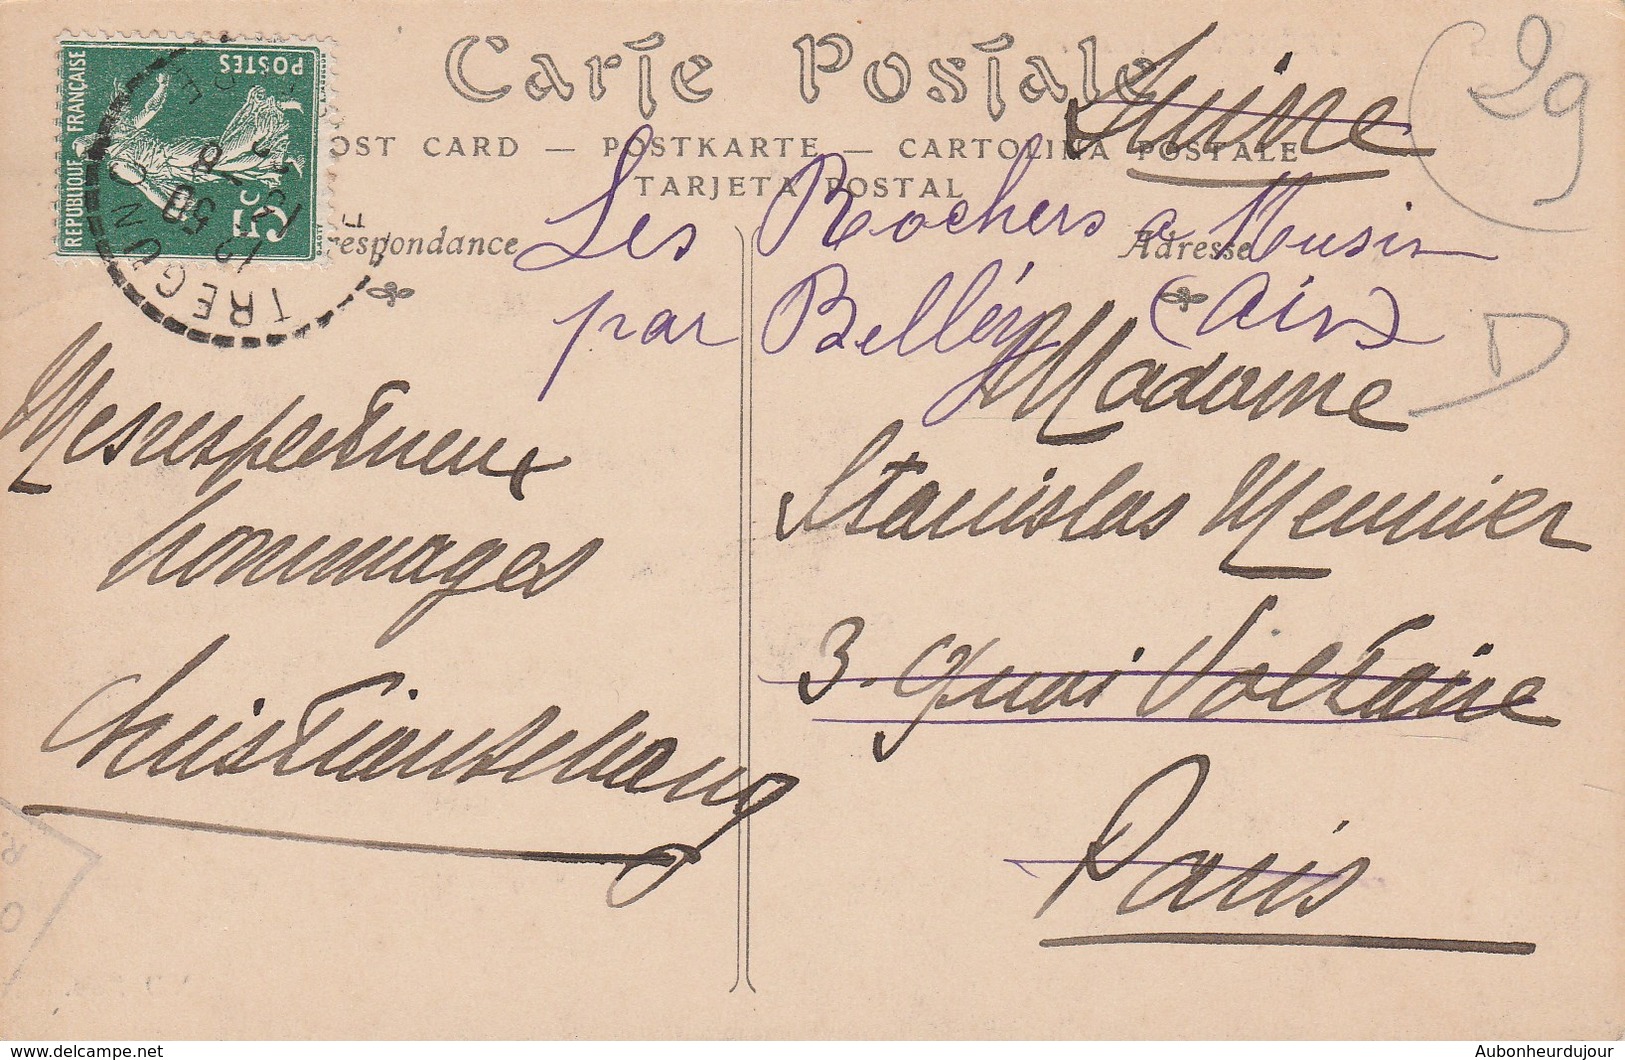 Carte Postale
POST CARD — POSTKARTE — CARTOLINA POSTALE
TARJETA POSTAL
Correspondance
Adresse
REPUBLIQUE FRANÇAISE
POSTES
5 C
TREGUNC
Suivre
Les Rochers a Musin
par Belley (Ain)
29
D
Mes respectueux
hommages
Madame
Stanislas Meunier
3. Quai Voltaire
Paris
OR
Aubonheurdujour